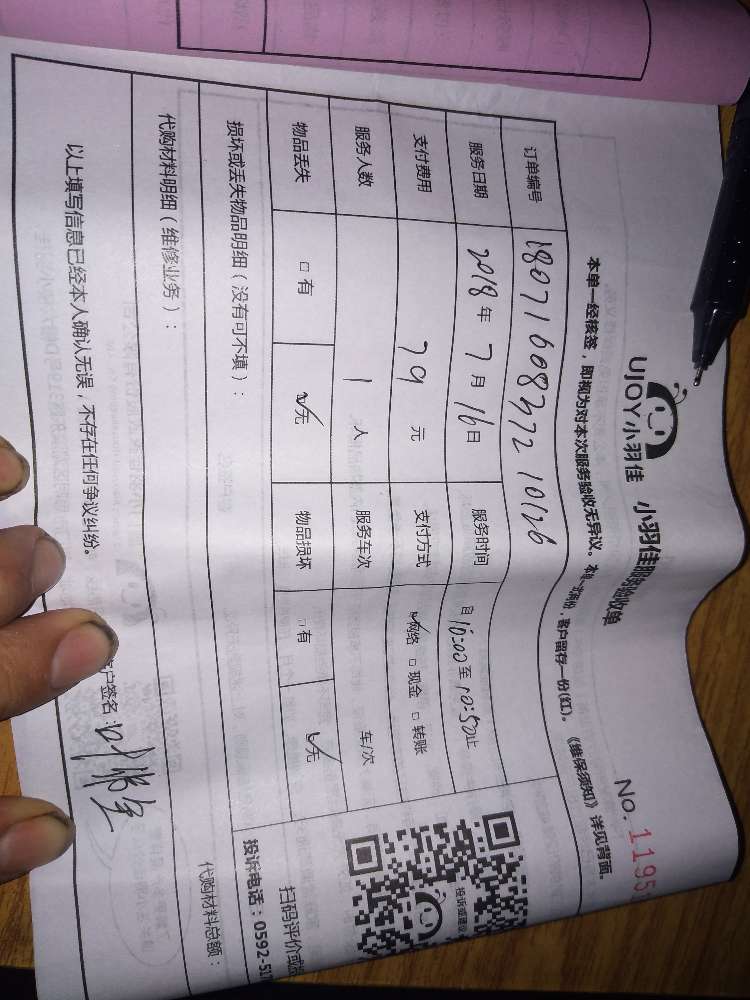 UJOY小羽佳 小羽佳服务验收单
No. 1195
本单一经核签，即视为对本次服务验收无异议。本单一式两份，客户留存一份(红)。《维保须知》详见背面。
订单编号 180716083721026
服务日期 2018年7月16日 服务时间 自10:00至10:50止
支付费用 79元 支付方式 ☑网络 □现金 □转账
服务人数 1人 服务车次 车/次
物品丢失 □有 ☑无 物品损坏 □有 ☑无
损坏或丢失物品明细（没有可不填）：
代购材料明细（维修业务）：
代购材料总额：
以上填写信息已经本人确认无误，不存在任何争议纠纷。
客户签名：
投诉或建议
扫码评价或
投诉电话：0592-517